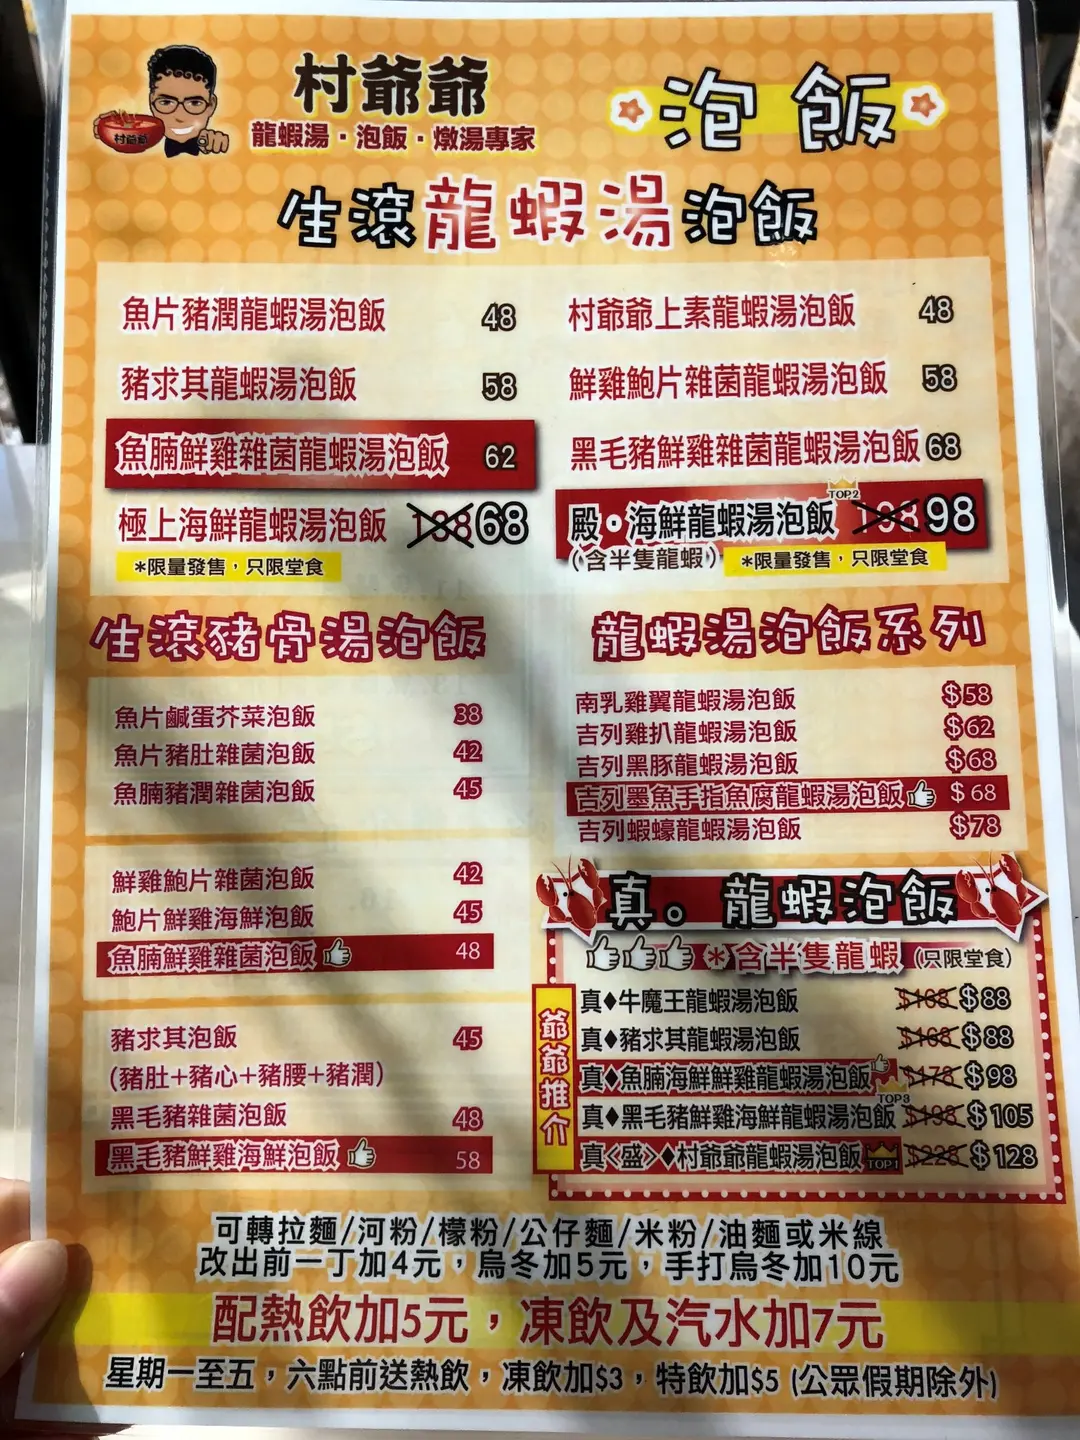 村爺爺
龍蝦湯・泡飯・燉湯專家
村爺爺
泡飯
生滾龍蝦湯泡飯
魚片豬潤龍蝦湯泡飯 48
豬求其龍蝦湯泡飯 58
魚腩鮮雞雜菌龍蝦湯泡飯 62
極上海鮮龍蝦湯泡飯 138 68
*限量發售，只限堂食
村爺爺上素龍蝦湯泡飯 48
鮮雞鮑片雜菌龍蝦湯泡飯 58
黑毛豬鮮雞雜菌龍蝦湯泡飯 68
TOP2
殿・海鮮龍蝦湯泡飯 198 98
(含半隻龍蝦) *限量發售，只限堂食
生滾豬骨湯泡飯
魚片鹹蛋芥菜泡飯 38
魚片豬肚雜菌泡飯 42
魚腩豬潤雜菌泡飯 45
鮮雞鮑片雜菌泡飯 42
鮑片鮮雞海鮮泡飯 45
魚腩鮮雞雜菌泡飯 48
豬求其泡飯 45
(豬肚+豬心+豬腰+豬潤)
黑毛豬雜菌泡飯 48
黑毛豬鮮雞海鮮泡飯 58
龍蝦湯泡飯系列
南乳雞翼龍蝦湯泡飯 $58
吉列雞扒龍蝦湯泡飯 $62
吉列黑豚龍蝦湯泡飯 $68
吉列墨魚手指魚腐龍蝦湯泡飯 $68
吉列蝦蠔龍蝦湯泡飯 $78
真。龍蝦泡飯
*含半隻龍蝦 (只限堂食)
爺爺推介
真♦牛魔王龍蝦湯泡飯 $168 $88
真♦豬求其龍蝦湯泡飯 $168 $88
真♦魚腩海鮮鮮雞龍蝦湯泡飯 $178 $98
TOP3
真♦黑毛豬鮮雞海鮮龍蝦湯泡飯 $198 $105
真<盛>♦村爺爺龍蝦湯泡飯 TOP1 $228 $128
可轉拉麵/河粉/檬粉/公仔麵/米粉/油麵或米線
改出前一丁加4元，烏冬加5元，手打烏冬加10元
配熱飲加5元，凍飲及汽水加7元
星期一至五，六點前送熱飲，凍飲加$3，特飲加$5 (公眾假期除外)